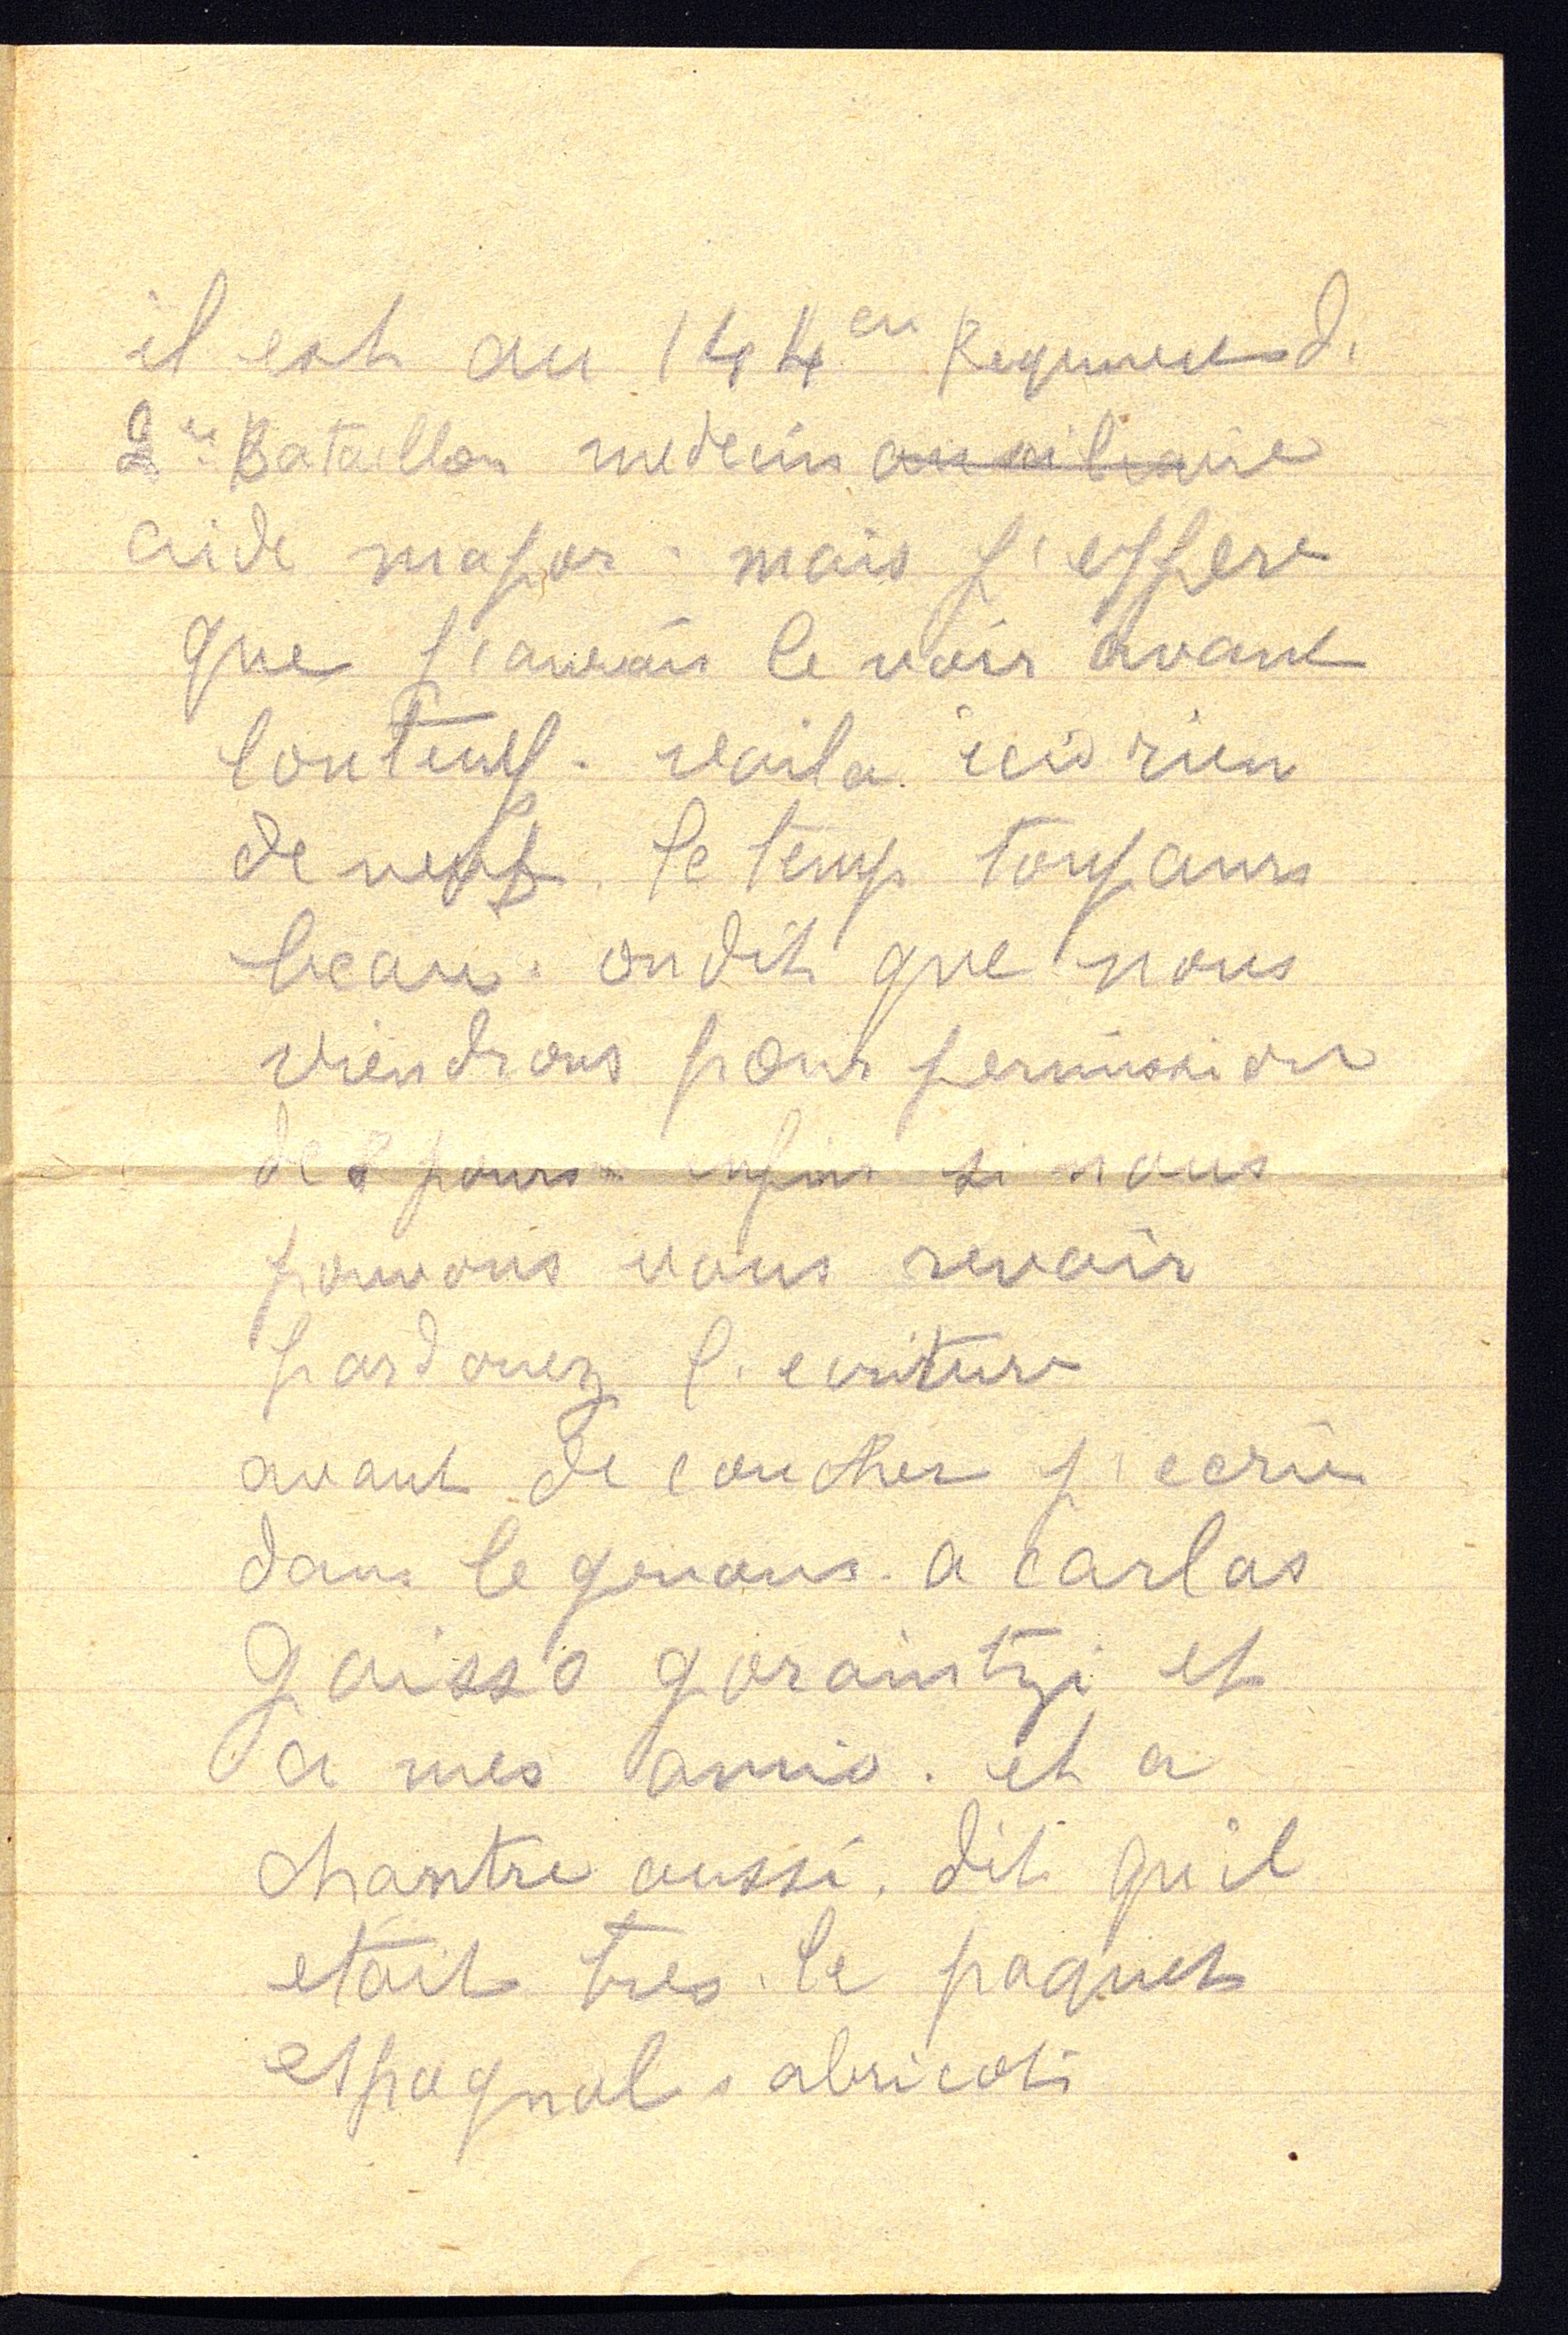 il est au 144em Regiment d.
2em Bataillon medecin auxiliaire
aide major. mais j'espere
que j'aurais le voir avant
lontemp. voila ici rien
de neuf. le temp toujours
beau. on dit que nous
viendrons pour permission
de 8 jours. enfin si nous
pouvons vous revoir
pardonez l'ecriture
avant de coucher j'ecris
dans le genous. a carlas
gaisso garaintzi et
a mes amis. et a
chantre aussi. dit qu'il
etait tres. le paquet
espagnol, abricots